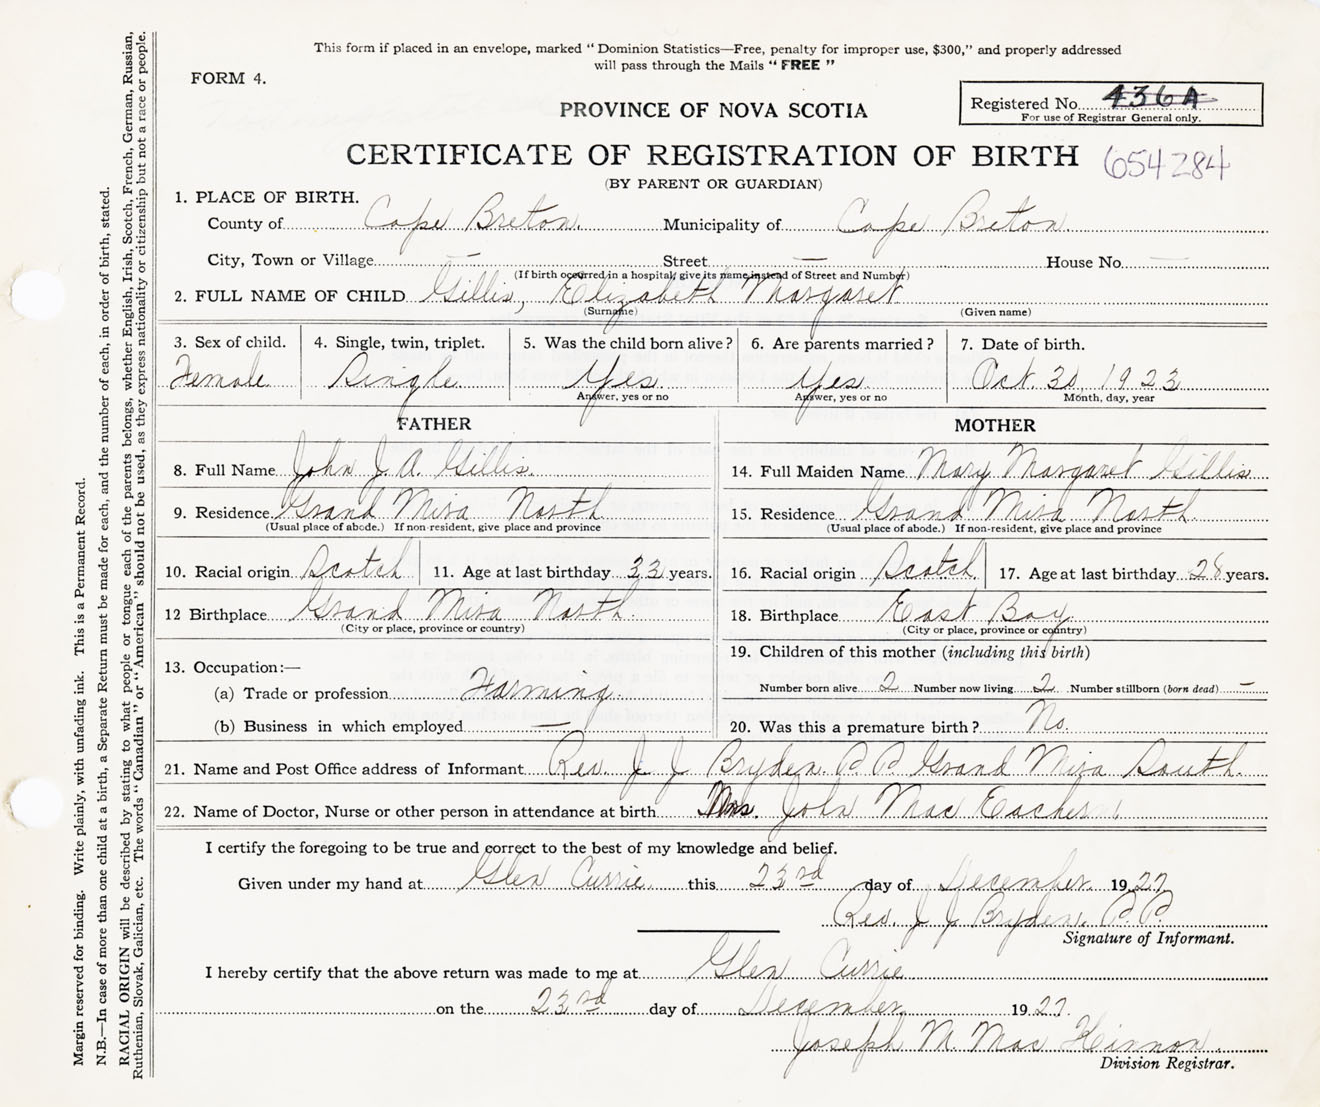 This form if placed in an envelope, marked " Dominion Statistics—Free, penalty for improper use, $300," and properly addressed
will pass through the Mails " FREE "
FORM 4.
PROVINCE OF NOVA SCOTIA
Registered No. 436A
For use of Registrar General only.
CERTIFICATE OF REGISTRATION OF BIRTH 654284
(BY PARENT OR GUARDIAN)
1. PLACE OF BIRTH.
County of Cape Breton. Municipality of Cape Breton
City, Town or Village — Street — House No. —
(If birth occurred in a hospital, give its name instead of Street and Number)
2. FULL NAME OF CHILD Gillis, Elizabeth Margaret
(Surname) (Given name)
3. Sex of child. 4. Single, twin, triplet. 5. Was the child born alive? 6. Are parents married? 7. Date of birth.
Female Single Yes Yes Oct. 30, 1923
Answer, yes or no Answer, yes or no Month, day, year
FATHER MOTHER
8. Full Name John J. A. Gillis. 14. Full Maiden Name Mary Margaret Gillis
9. Residence Grand Mira North 15. Residence Grand Mira North
(Usual place of abode.) If non-resident, give place and province (Usual place of abode.) If non-resident, give place and province
10. Racial origin Scotch 11. Age at last birthday 33 years. 16. Racial origin Scotch 17. Age at last birthday 28 years.
12 Birthplace Grand Mira North. 18. Birthplace East Bay
(City or place, province or country) (City or place, province or country)
13. Occupation:— 19. Children of this mother (including this birth)
(a) Trade or profession Farming Number born alive 2 Number now living 2 Number stillborn (born dead) —
(b) Business in which employed — 20. Was this a premature birth? No.
21. Name and Post Office address of Informant Rev. J J Bryden. P.P. Grand Mira South.
22. Name of Doctor, Nurse or other person in attendance at birth Mrs. John Mac Eachern
I certify the foregoing to be true and correct to the best of my knowledge and belief.
Given under my hand at Glen Currie this 23rd day of December 1927
Rev. J J Bryden. P.P.
Signature of Informant.
I hereby certify that the above return was made to me at Glen Currie
on the 23rd day of December 1927.
Joseph M. Mac Kinnon.
Division Registrar.
Margin reserved for binding. Write plainly, with unfading ink. This is a Permanent Record.
N.B.—In case of more than one child at a birth, a Separate Return must be made for each, and the number of each, in order of birth, stated.
RACIAL ORIGIN will be described by stating to what people or tongue each of the parents belongs, whether English, Irish, Scotch, French, German, Russian,
Ruthenian, Slovak, Galician, etc. The words " Canadian " or " American " should not be used, as they express nationality or citizenship but not a race or people.